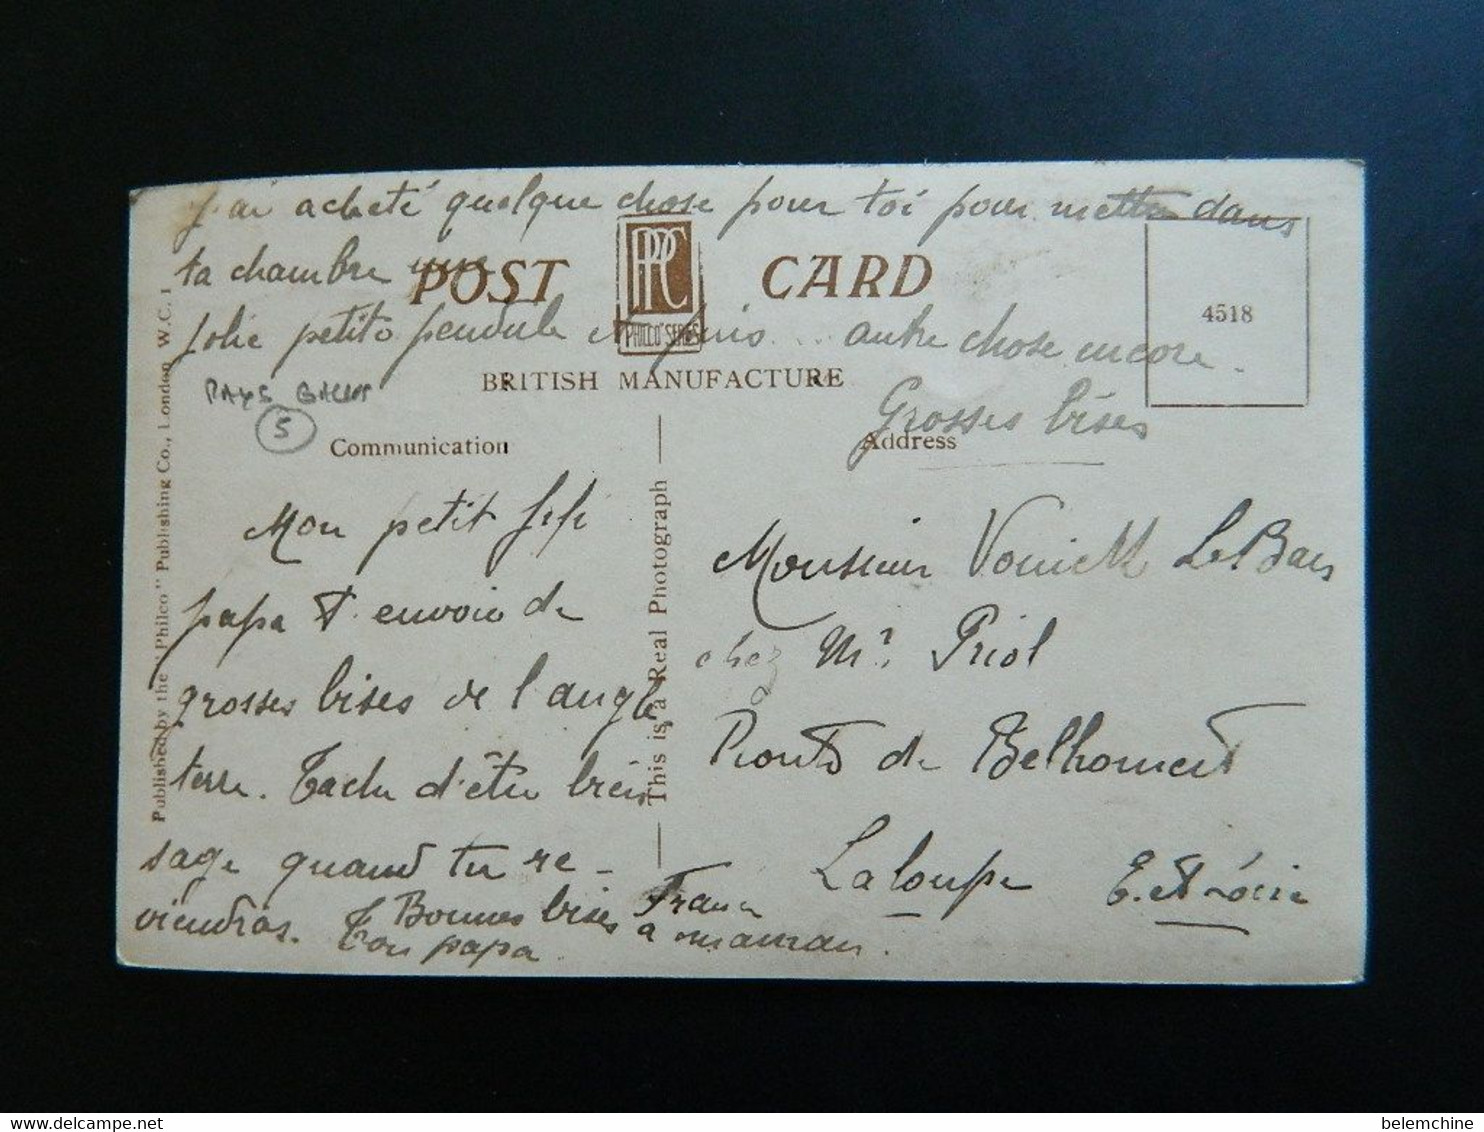 J'ai acheté quelque chose pour toi pour mettre dans
ta chambre une
POST CARD
PPC
"PHILCO" SERIES
jolie petite pendule et puis ... autre chose encore.
Grosses bises
4518
BRITISH MANUFACTURE
PAYS GALLES
5
Communication
Address
Mon petit
papa t'envoie de
grosses bises de l'angle
terre. Tache d'être bien
sage quand tu re-
viendras. Ton papa
Bonnes bises à maman.
Monsieur Le Bars
chez Mr. Priol
Pronts de Belhomert
La loupe E. et Loir
France
This is a Real Photograph
Published by the "Philco" Publishing Co., London W.C. 1
https://www.delcampe.net
belemchine